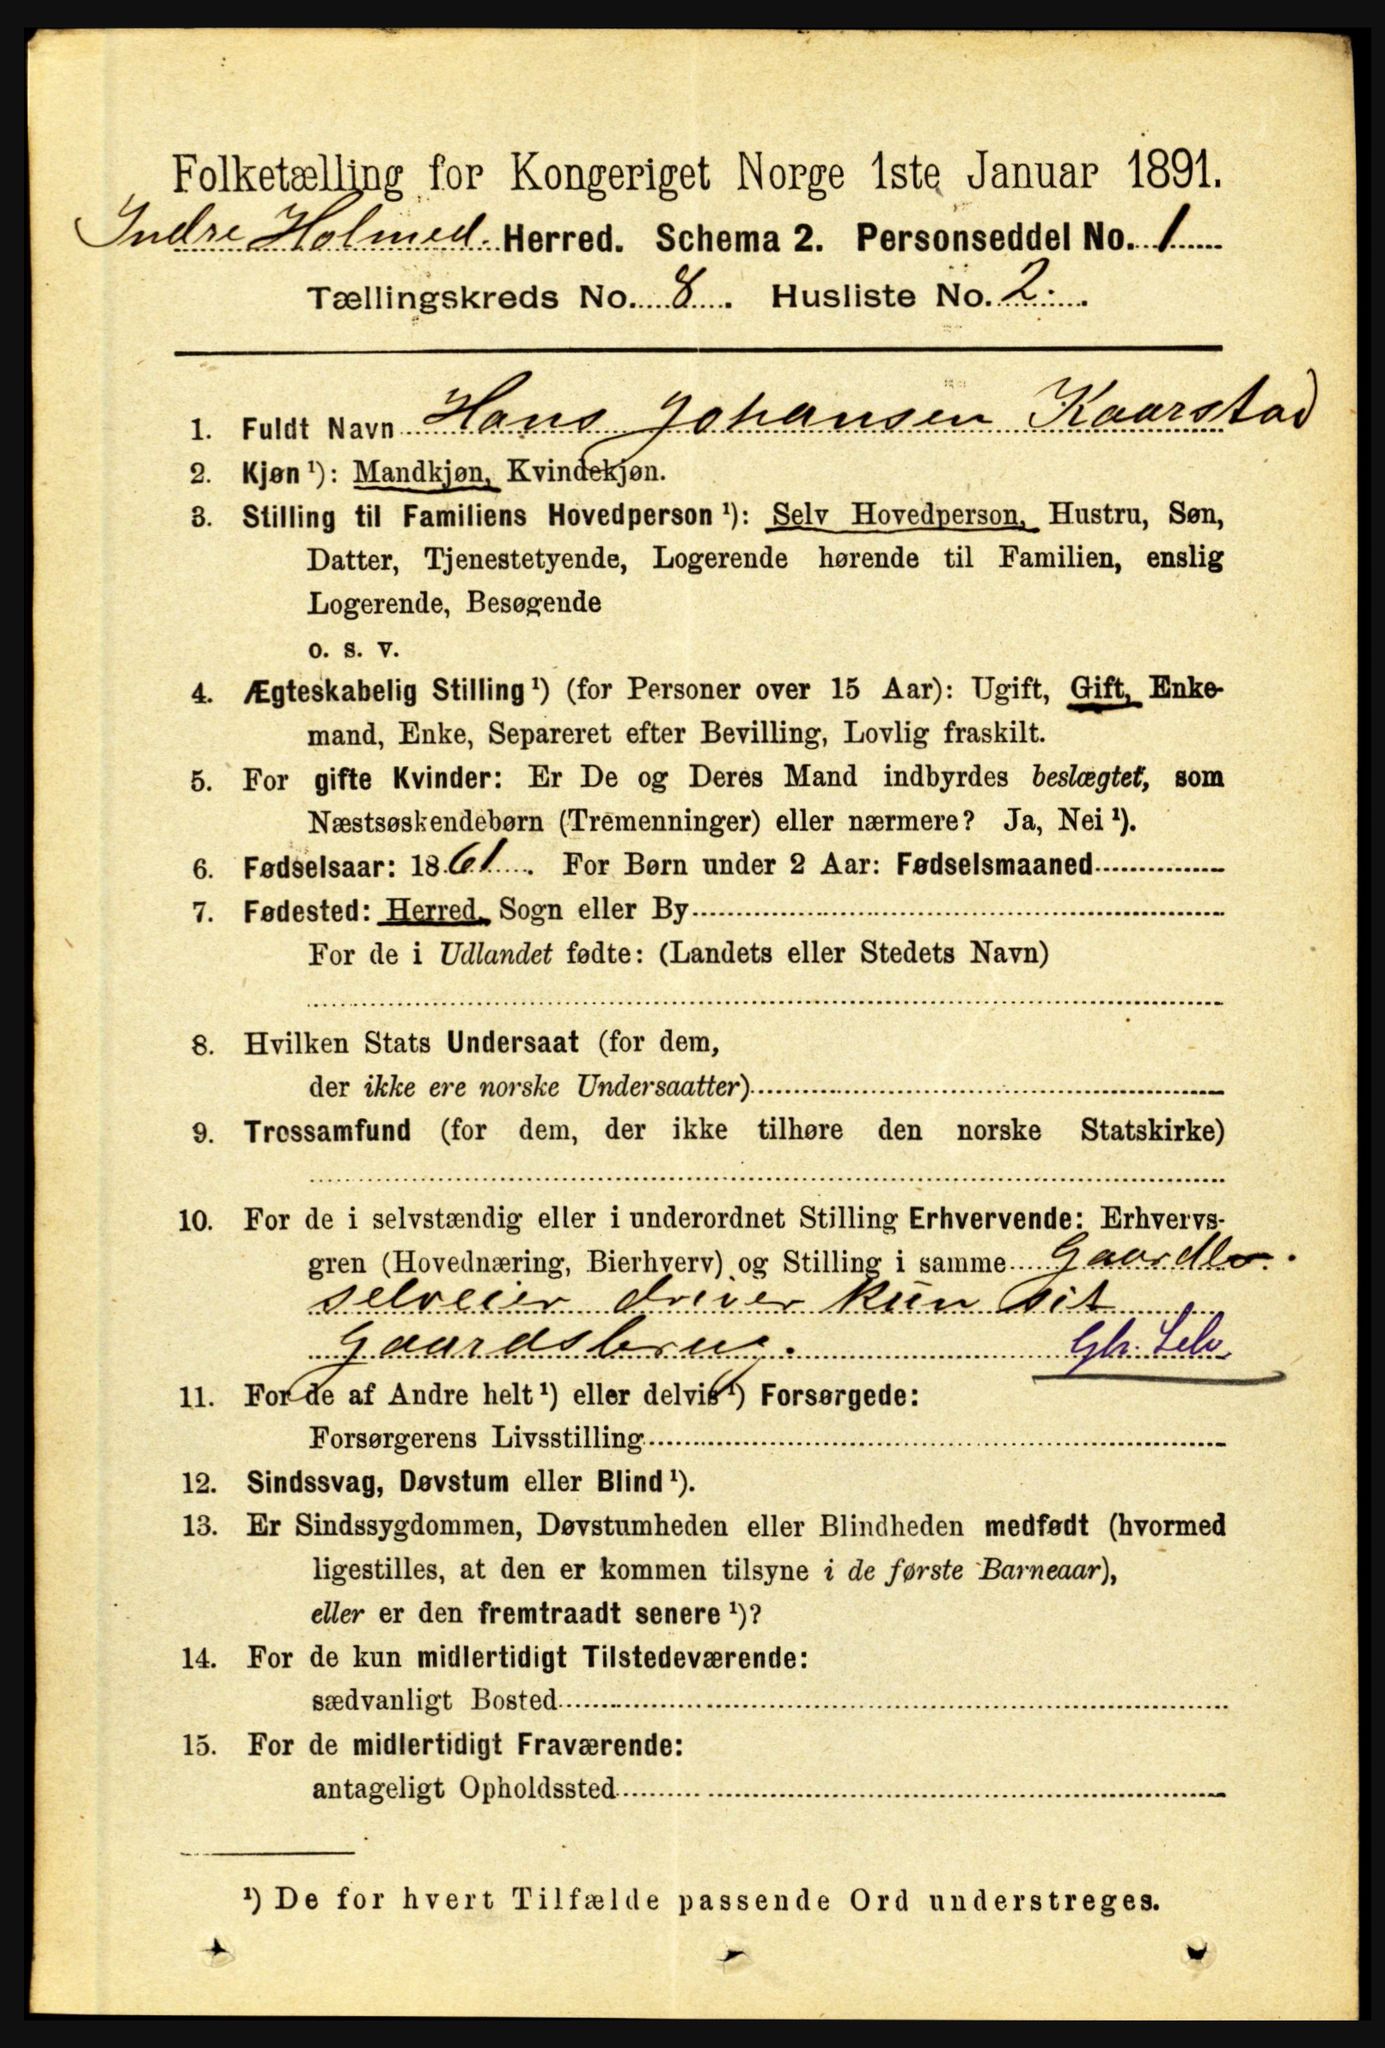 Folketælling for Kongeriget Norge 1ste Januar 1891.
Indre Holmed. Herred. Schema 2. Personseddel No. 1
Tællingskreds No. 8. Husliste No. 2.
1. Fuldt Navn Hans Johansen Kaarstad
2. Kjøn ¹): Mandkjøn, Kvindekjøn.
3. Stilling til Familiens Hovedperson ¹): Selv Hovedperson, Hustru, Søn,
Datter, Tjenestetyende, Logerende hørende til Familien, enslig
Logerende, Besøgende
o. s. v.
4. Ægteskabelig Stilling ¹) (for Personer over 15 Aar): Ugift, Gift, Enke-
mand, Enke, Separeret efter Bevilling, Lovlig fraskilt.
5. For gifte Kvinder: Er De og Deres Mand indbyrdes beslægtet, som
Næstsøskendebørn (Tremenninger) eller nærmere? Ja, Nei ¹).
6. Fødselsaar: 1861. For Børn under 2 Aar: Fødselsmaaned
7. Fødested: Herred, Sogn eller By
For de i Udlandet fødte: (Landets eller Stedets Navn)
8. Hvilken Stats Undersaat (for dem,
der ikke ere norske Undersaatter)
9. Trossamfund (for dem, der ikke tilhøre den norske Statskirke)
10. For de i selvstændig eller i underordnet Stilling Erhvervende: Erhvervs-
gren (Hovednæring, Bierhverv) og Stilling i samme
selveier driver kun sit
Gaardsbrug. Gbr. Selv.
11. For de af Andre helt ¹) eller delvis ¹) Forsørgede:
Forsørgerens Livsstilling
12. Sindssvag, Døvstum eller Blind ¹).
13. Er Sindssygdommen, Døvstumheden eller Blindheden medfødt (hvormed
ligestilles, at den er kommen tilsyne i de første Barneaar),
eller er den fremtraadt senere ¹)?
14. For de kun midlertidigt Tilstedeværende:
sædvanligt Bosted
15. For de midlertidigt Fraværende:
antageligt Opholdssted
¹) De for hvert Tilfælde passende Ord understreges.